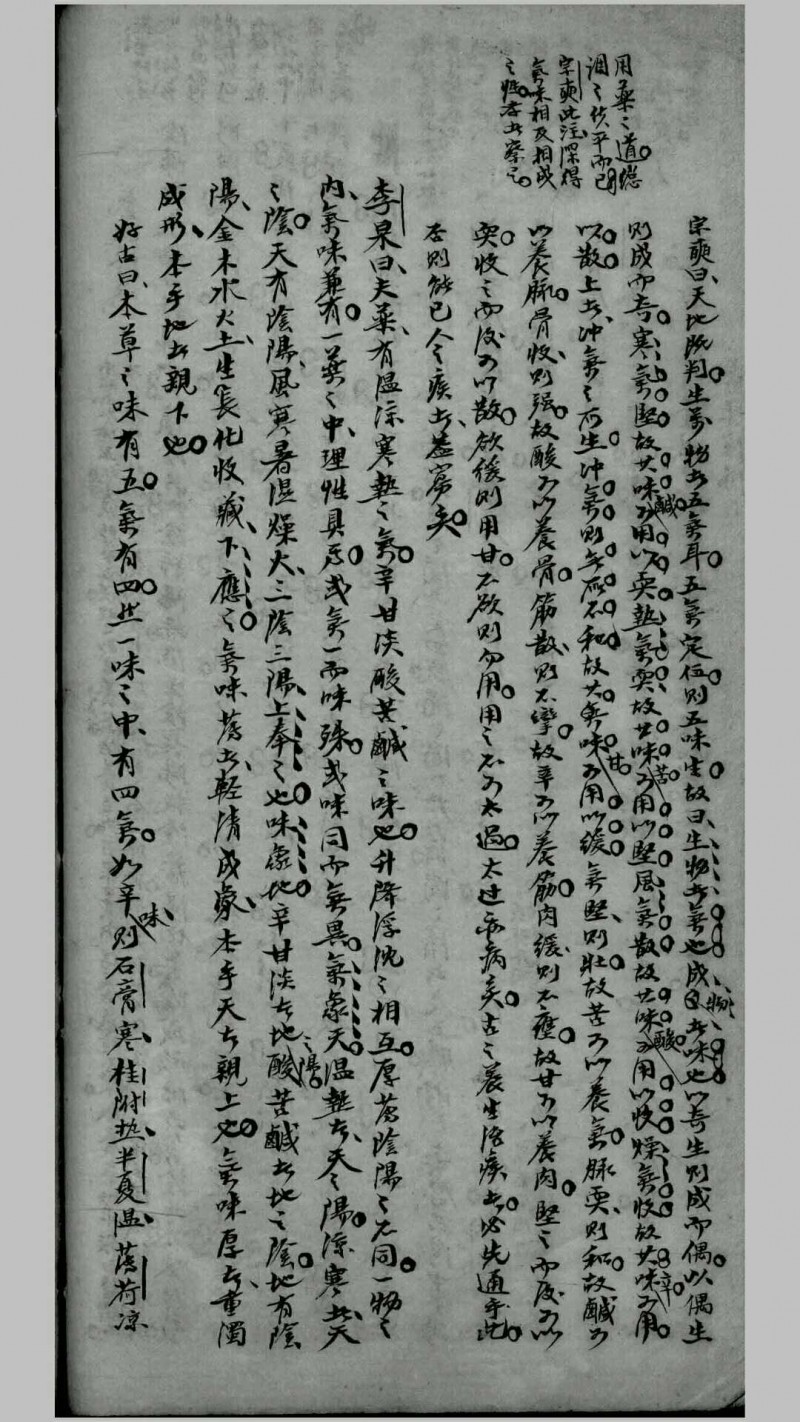 用藥之道總
泪之伏平而已
宗奭此注深得
氣味相反相成
之性存者察之
宗奭曰天地既判生萬物者五氣耳五氣定位則五味生故曰生物者氣也成物者味也以奇生則成而偶以偶生
則成而奇寒氣堅故其味鹹可用以耎熱氣耎故其味苦可用以堅風氣散故其味酸可用以收燥氣收故其味辛可用
以散土者冲氣之所生冲氣則無所不和故其氣味甘可用以緩氣堅則壯故苦可以養氣脉耎則和故鹹可
以養脉骨收則强故酸可以養骨筋散則不攣故辛可以養筋肉緩則不壅故甘可以養肉堅之而後可以
耎收之而後可以散欲緩則用甘不欲則勿用用之不可太過太过亦病矣古之養生治疾者必先通乎此
否則能已人之疾者蓋寡矣
李杲曰夫藥有温凉寒熱之氣辛甘淡酸苦鹹之味也升降浮沈之相互厚薄陰陽之不同一物之
内氣味兼有一藥之中理性具焉或氣一而味殊或味同而氣異氣象天温熱者天之陽凉寒者天
之陰天有陰陽風寒暑濕燥火三陰三陽上奉之也味象地辛甘淡者地之陽酸苦鹹者地之陰地有陰
陽金木水火土生長化收藏下應之氣味薄者輕清成象本乎天者親上也氣味厚者重濁
成形本乎地者親下也
好古曰本草之味有五氣有四然一味之中有四氣如辛味則石膏寒桂附热半夏温薄荷凉